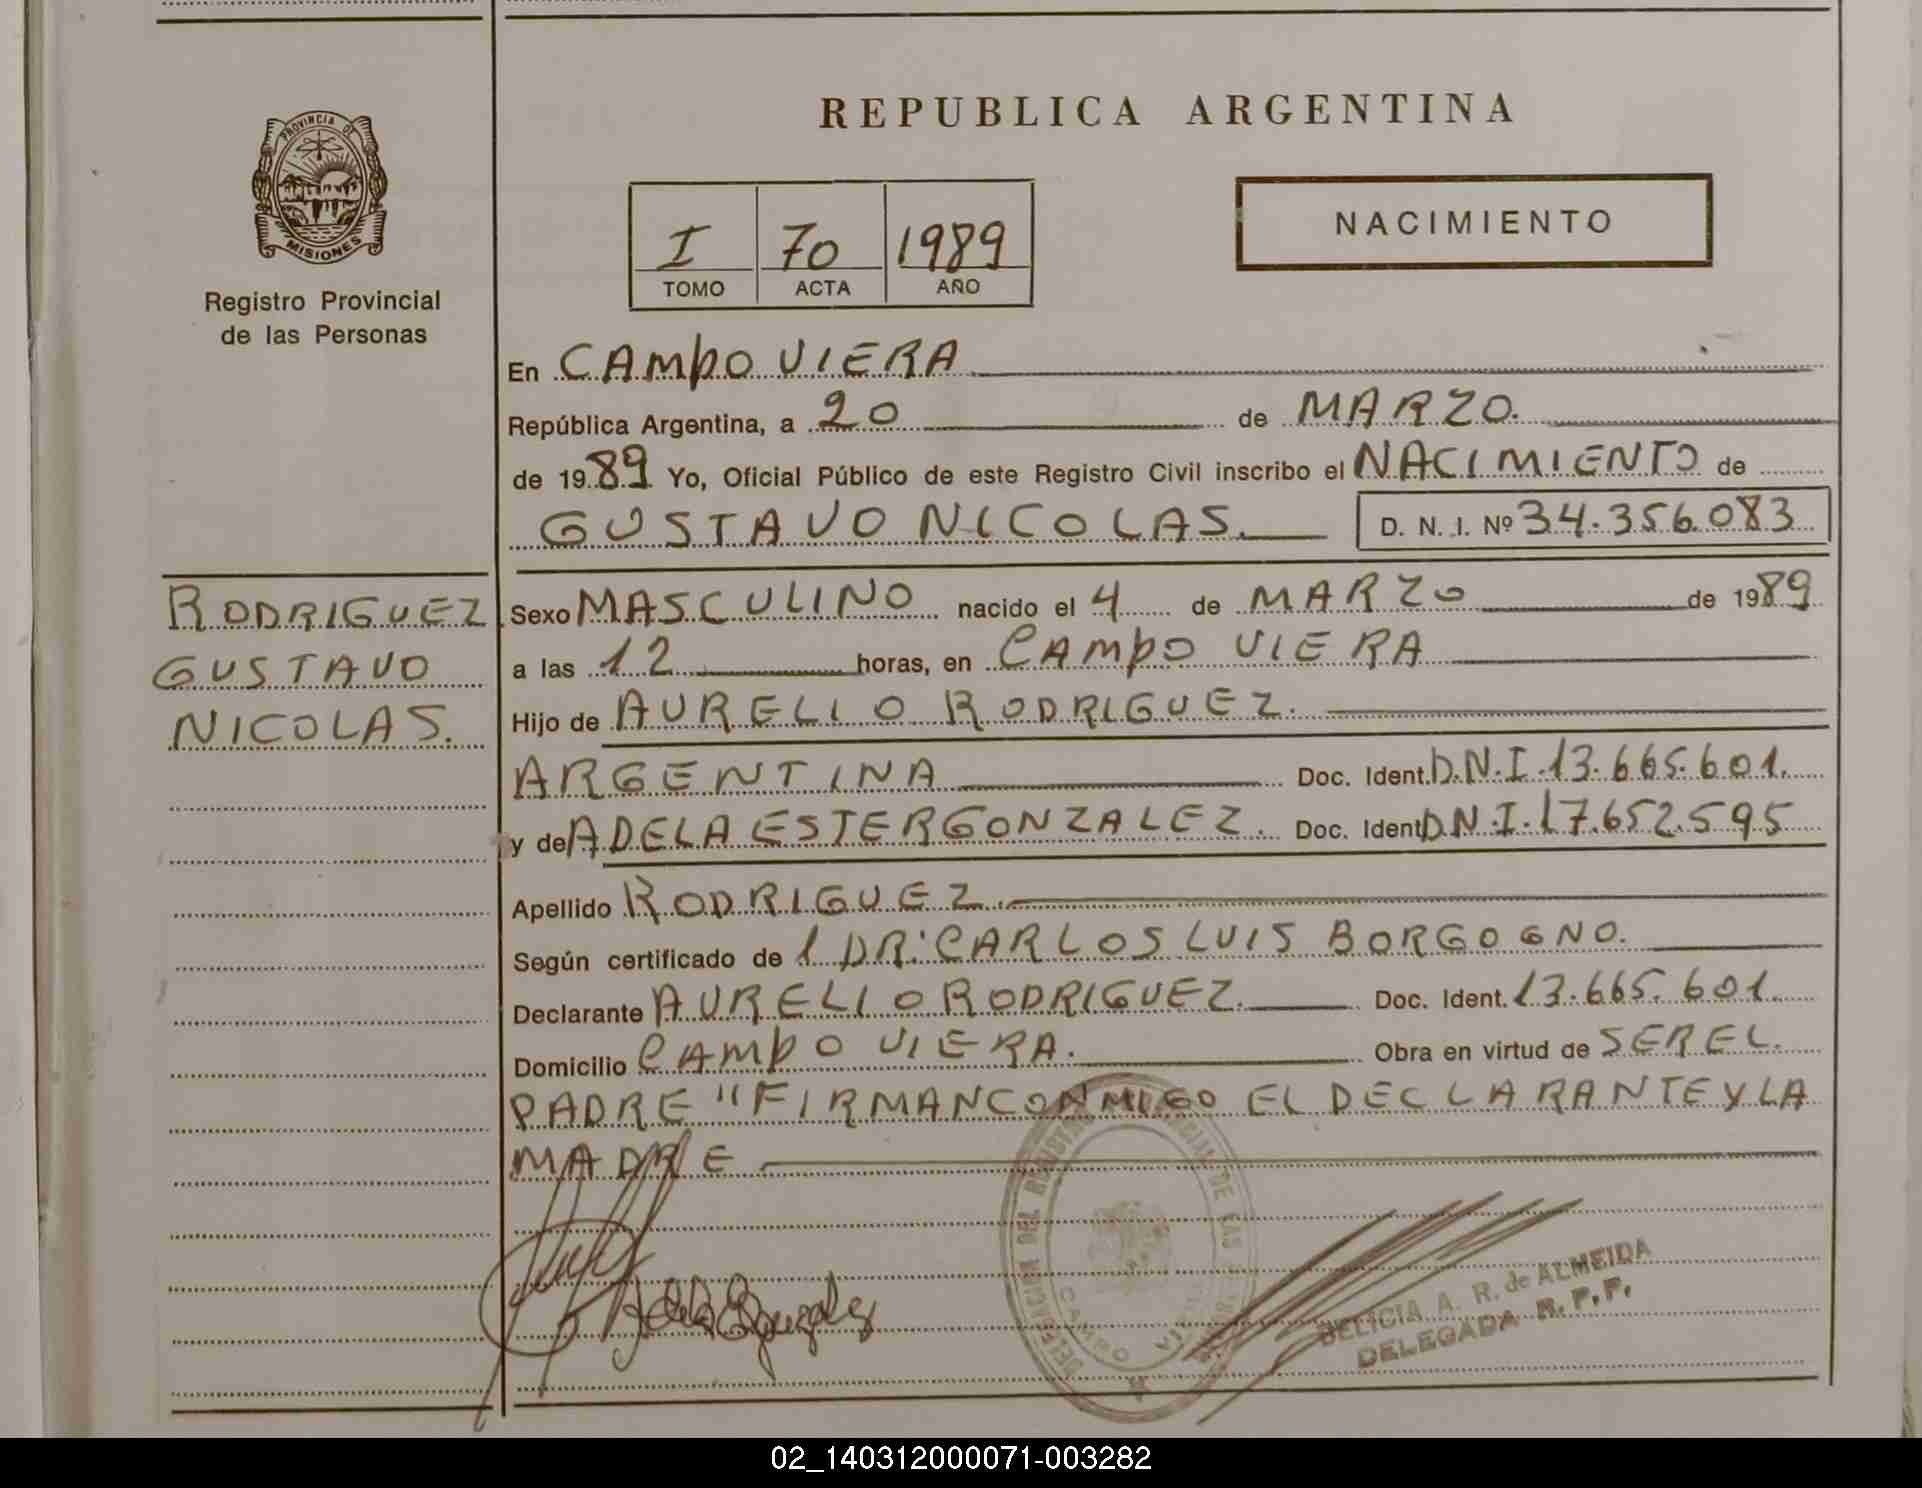 REPUBLICA ARGENTINA
PROVINCIA DE
MISIONES
Registro Provincial
de las Personas
I 70 1989
TOMO ACTA AÑO
NACIMIENTO
En CAMPO VIERA
República Argentina, a 20 de MARZO.
de 1989 Yo, Oficial Público de este Registro Civil inscribo el NACIMIENTO de
GUSTAVO NICOLAS. D. N. I. Nº 34.356.083
RODRIGUEZ
GUSTAVO
NICOLAS.
Sexo MASCULINO nacido el 4 de MARZO de 1989
a las 12 horas, en CAMPO VIERA
Hijo de AURELIO RODRIGUEZ.
ARGENTINA Doc. Ident. D.N.I.13.665.601.
y de ADELA ESTER GONZALEZ. Doc. Ident D.N.I.17.652.595
Apellido RODRIGUEZ.
Según certificado de 1 DR: CARLOS LUIS BORGOGNO.
Declarante AURELIO RODRIGUEZ. Doc. Ident. 13.665.601.
Domicilio CAMPO VIERA. Obra en virtud de SER EL
PADRE "FIRMAN CONMIGO EL DECLARANTE Y LA
MADRE
Adela E gonzalez
DELEGACION DEL REGISTRO PROVINCIAL DE LAS
CAMPO VIERA
DELICIA A. R. de ALMEIDA
DELEGADA R. P. P.
02_140312000071-003282